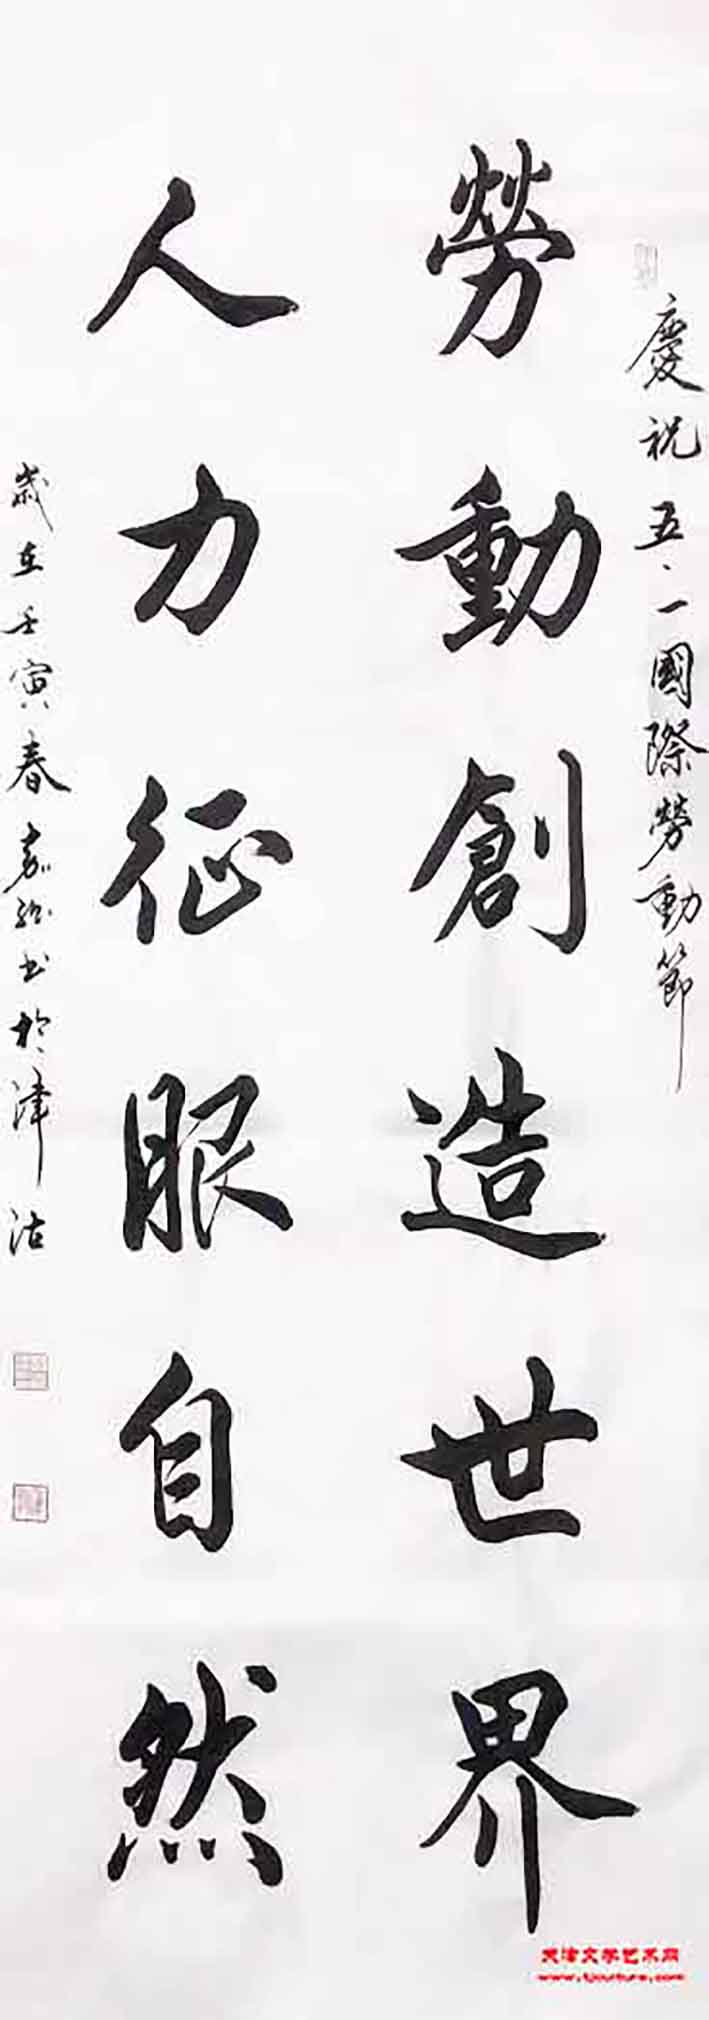 慶祝五·一國際勞動節
勞動創造世界
人力征服自然
歲在壬寅春嘉弘书於津沽
天津文学艺术网
www.tjculture.com